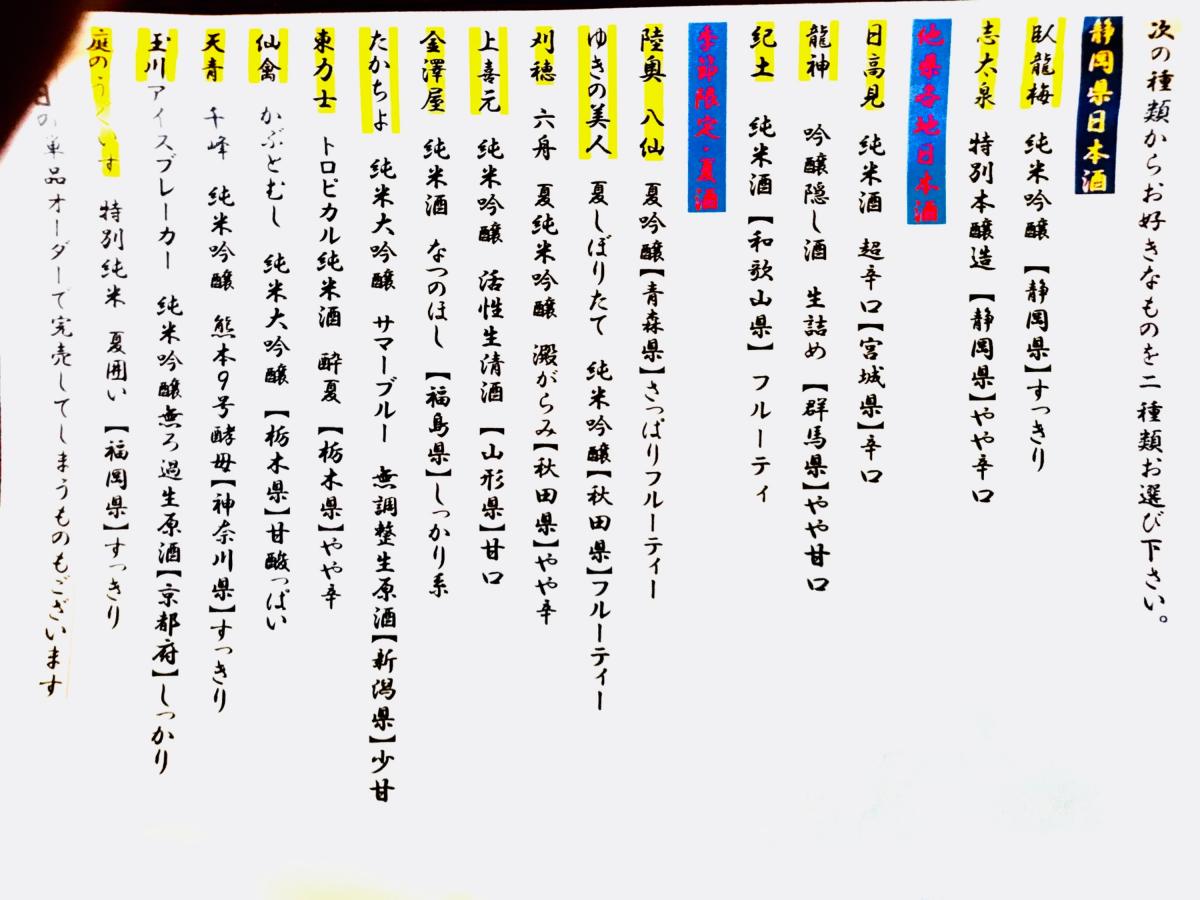 次の種類からお好きなものを二種類お選び下さい。
静岡県日本酒
臥龍梅 純米吟醸 【静岡県】すっきり
志太泉 特別本醸造 【静岡県】やや辛口
他県各地日本酒
日高見 純米酒 超辛口【宮城県】辛口
龍神 吟醸隠し酒 生詰め 【群馬県】やや甘口
紀土 純米酒 【和歌山県】 フルーティ
季節限定・夏酒
陸奥 八仙 夏吟醸【青森県】さっぱりフルーティー
ゆきの美人 夏しぼりたて 純米吟醸【秋田県】フルーティー
刈穂 六舟 夏純米吟醸 澱がらみ【秋田県】やや辛
上喜元 純米吟醸 活性生清酒 【山形県】甘口
金澤屋 純米酒 なつのほし 【福島県】しっかり系
たかちよ 純米大吟醸 サマーブルー 無調整生原酒【新潟県】少甘
東力士 トロピカル純米酒 酔夏 【栃木県】やや辛
仙禽 かぶとむし 純米大吟醸 【栃木県】甘酸っぱい
天青 千峰 純米吟醸 熊本9号酵母【神奈川県】すっきり
玉川アイスブレーカー 純米吟醸無ろ過生原酒【京都府】しっかり
庭のうぐいす 特別純米 夏囲い 【福岡県】すっきり
日の単品オーダーで完売してしまうものもございます